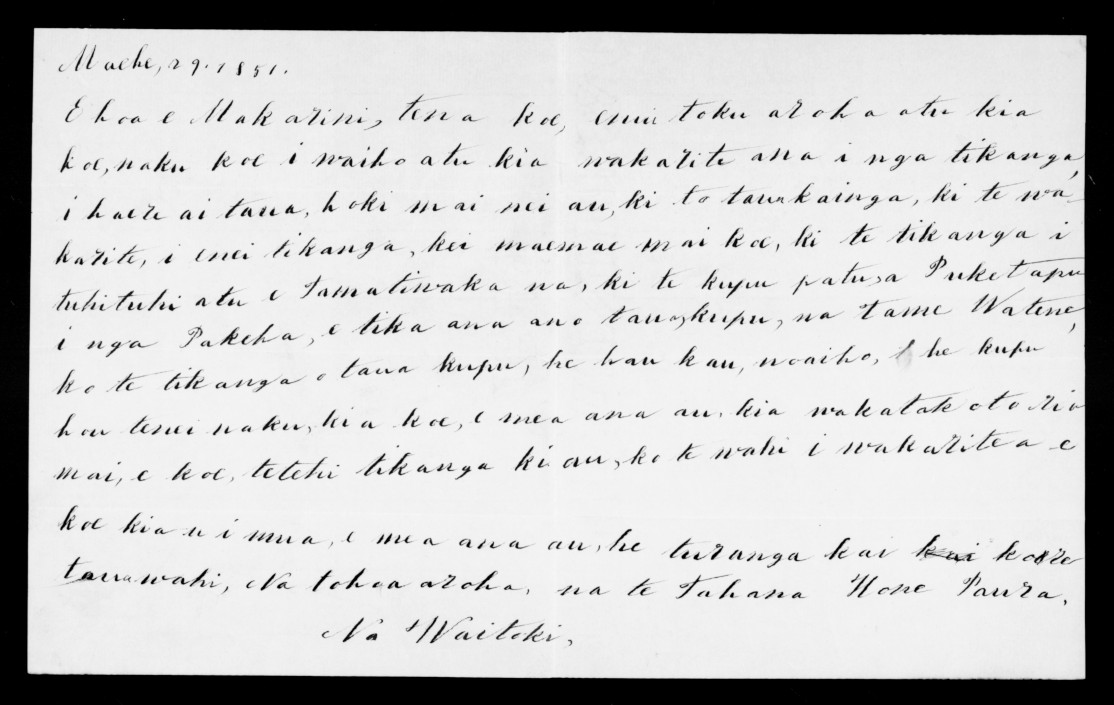 Mache, 29. 1851.
E hoa e Makarini, tena koe, enui toku aroha atu kia
koe, naku koe i waiho atu kia wakarite ana i nga tikanga,
i haere ai taua, hoki mai nei au, ki to tauakainga, ki te wa-
karite, i enei tikanga, kei maemae mai koe, ki te tikanga i
tuhituhi atu e Tamatiwaka na, ki te kupu patu, a Puketapu
i nga Pakeha, e tika ana ano taua, kupu, na tame Watene,
ko te tikanga o taua kupu, he hau kau, noaiho, he kupu
hou tenei naku, kia koe, e mea ana au, kia wakatakoto ria
mai, e koe, tetehi tikanga ki au, ko te wahi i wakaritea e
koe kia u i mua, e mea ana au, he turanga kai kai kore
tauawahi, Na tohoa aroha, na te Tahana Hone Paura,
Na Waitoki,